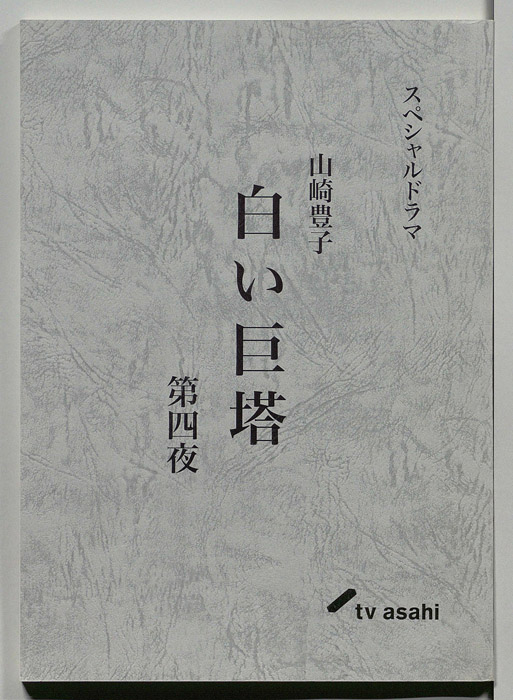 スペシャルドラマ
山崎豊子
白い巨塔
第四夜
tv asahi